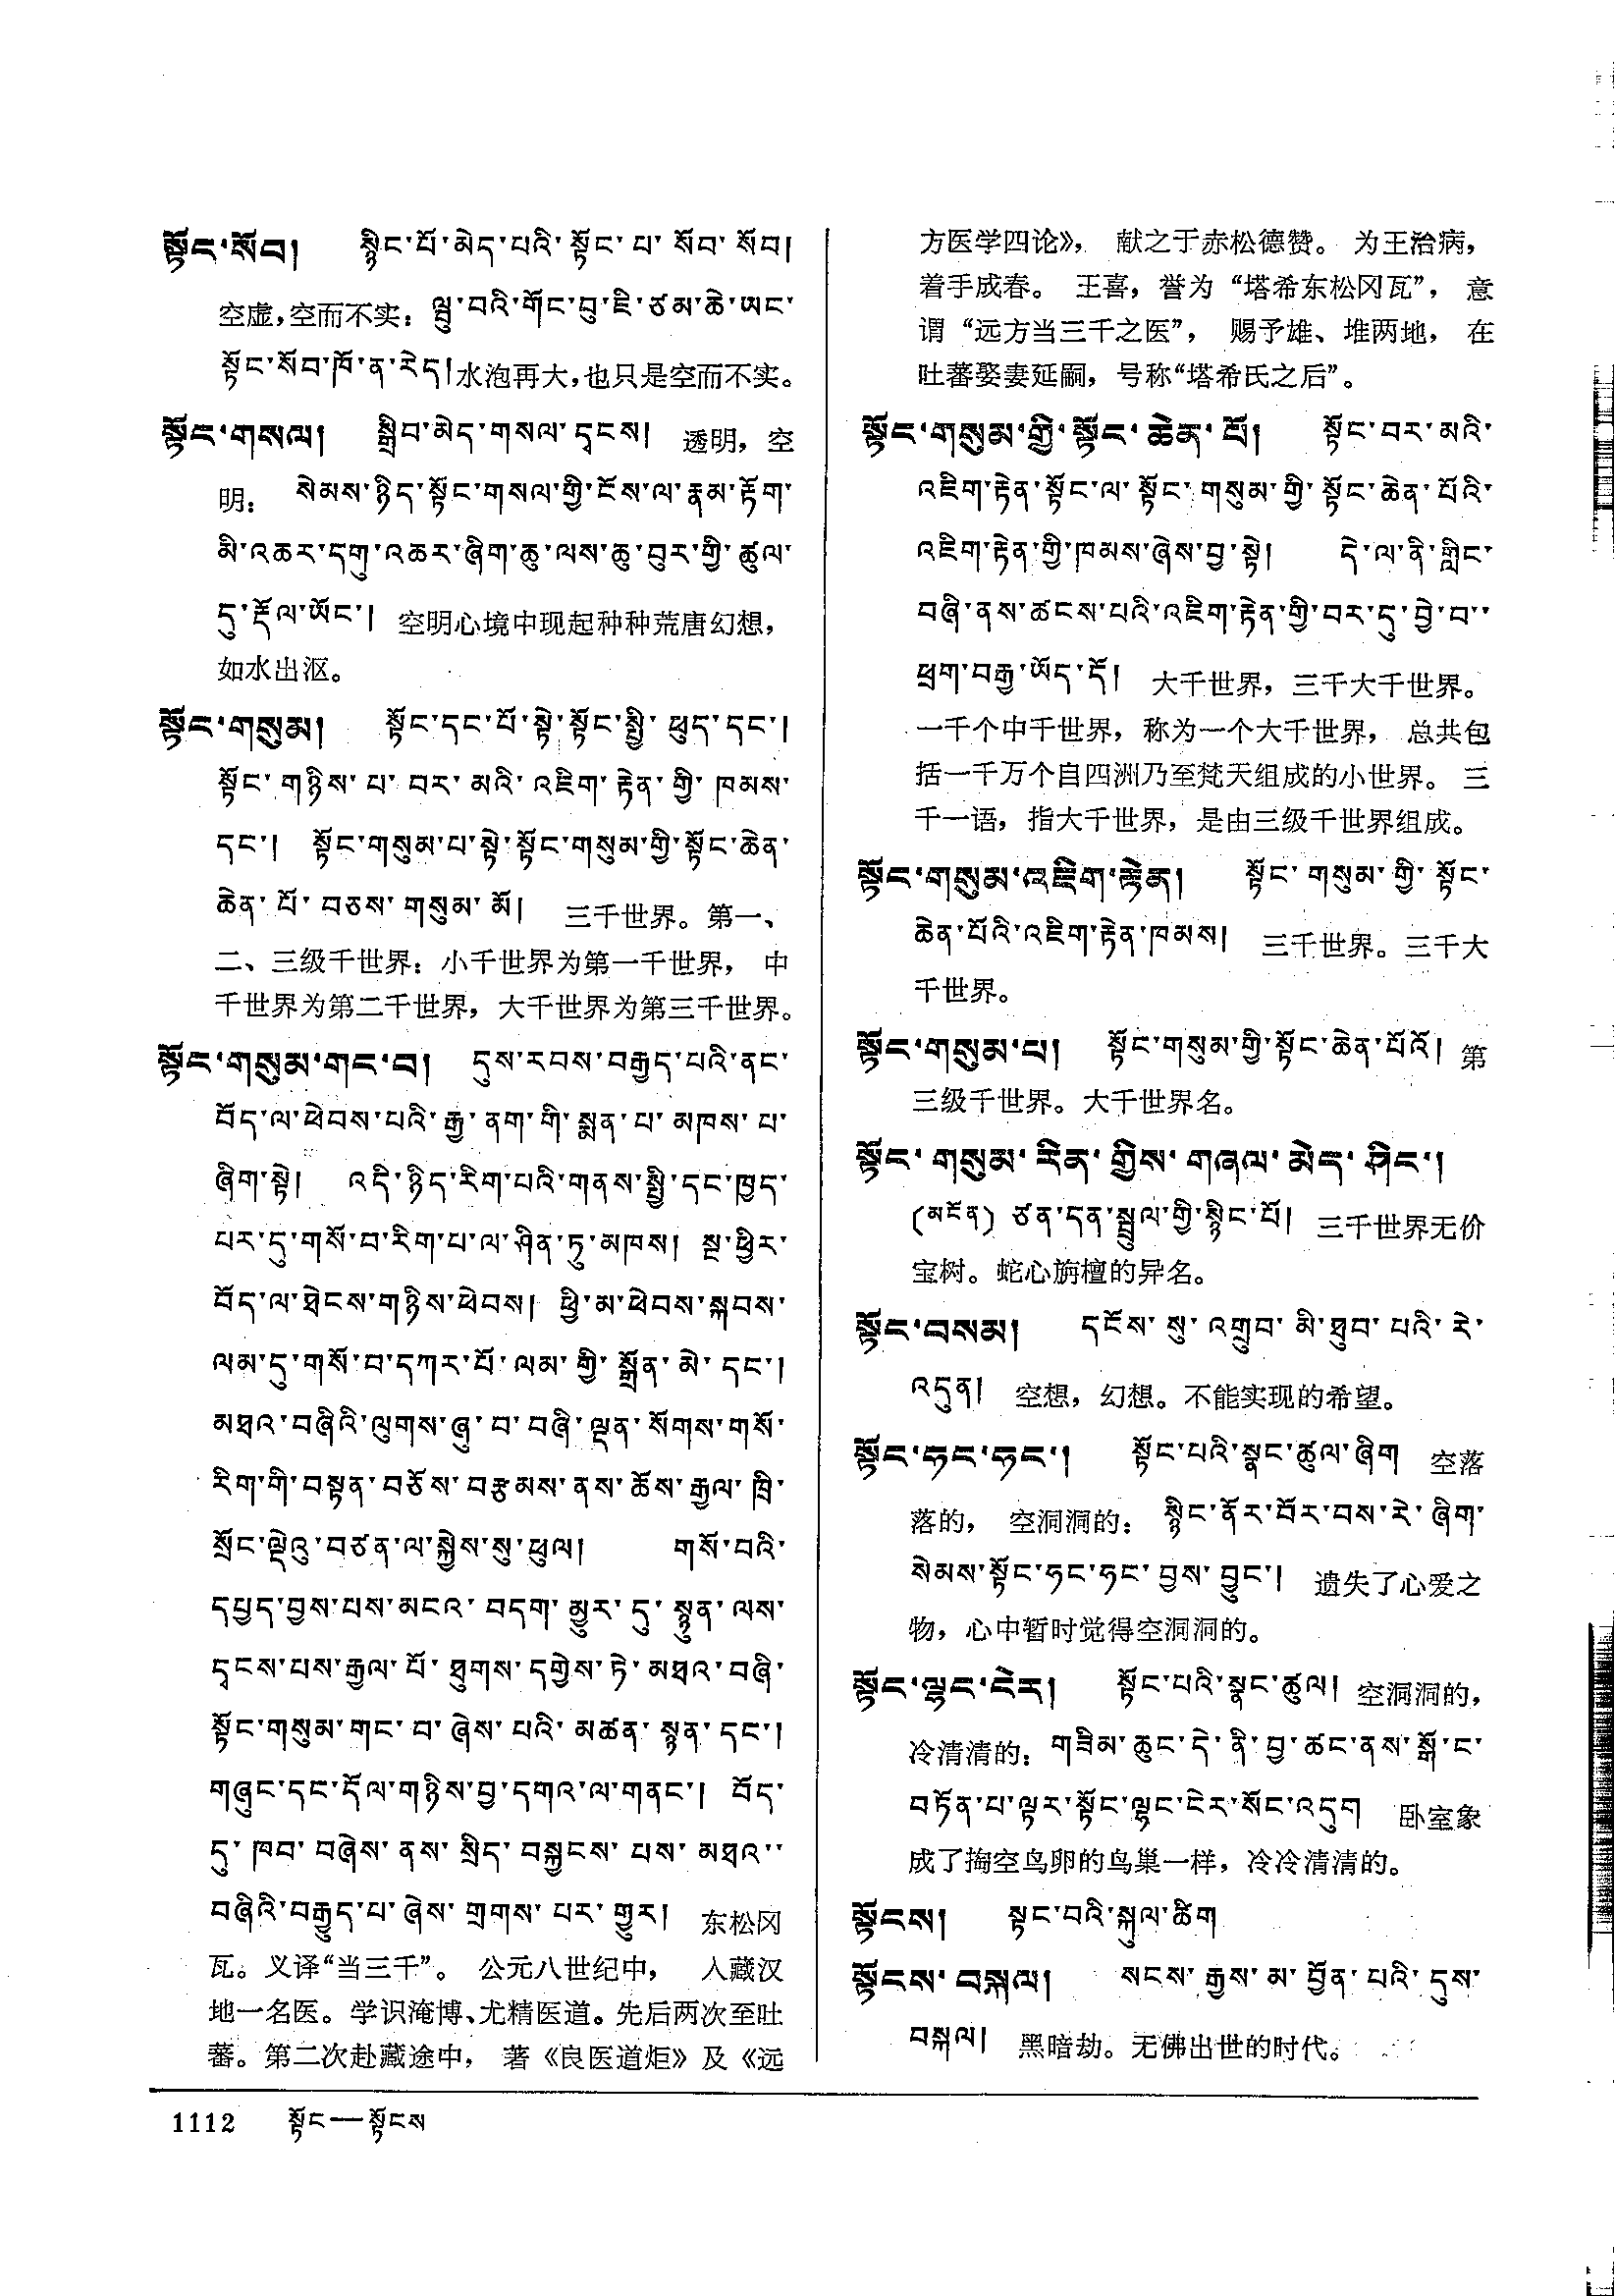 སྟོང་སོབ། སྙིང་པོ་མེད་པའི་སྟོང་པ་སོབ་སོབ།
空虚，空而不实：ལྦུ་བའི་གོང་བུ་ཇི་ཙམ་ཆེ་ཡང་
སྟོང་སོབ་ཁོ་ན་རེད།水泡再大，也只是空而不实。
སྟོང་གསལ། སྒྲིབ་མེད་གསལ་དྭངས། 透明，空
明：སེམས་ཉིད་སྟོང་གསལ་གྱི་ངོས་ལ་རྣམ་རྟོག་
མི་འཆར་དགུ་འཆར་ཞིག་ཆུ་ལས་ཆུ་བུར་གྱི་ཚུལ་
དུ་རྡོལ་ཡོང་། 空明心境中现起种种荒唐幻想，
如水出沤。
སྟོང་གསུམ། སྟོང་དང་པོ་སྟེ་སྟོང་སྤྱི་ཕུད་དང་།
སྟོང་གཉིས་པ་བར་མའི་འཇིག་རྟེན་གྱི་ཁམས་
དང་། སྟོང་གསུམ་པ་སྟེ་སྟོང་གསུམ་གྱི་སྟོང་ཆེན་
ཆེན་པོ་བཅས་གསུམ་མོ། 三千世界。第一、
二、三级千世界：小千世界为第一千世界，中
千世界为第二千世界，大千世界为第三千世界。
སྟོང་གསུམ་གང་བ། དུས་རབས་བརྒྱད་པའི་ནང་
བོད་ལ་ཕེབས་པའི་རྒྱ་ནག་གི་སྨན་པ་མཁས་པ་
ཞིག་སྟེ། འདི་ཉིད་རིག་པའི་གནས་སྤྱི་དང་ཁྱད་
པར་དུ་གསོ་བ་རིག་པ་ལ་ཤིན་ཏུ་མཁས། སྔ་ཕྱིར་
བོད་ལ་ཐེངས་གཉིས་ཕེབས། ཕྱི་མ་ཕེབས་སྐབས་
ལམ་དུ་གསོ་བ་དཀར་པོ་ལམ་གྱི་སྒྲོན་མེ་དང་།
མཐའ་བཞིའི་ལུགས་ཞུ་བ་བཞི་ལྡན་སོགས་གསོ་
རིག་གི་བསྟན་བཅོས་བརྩམས་ནས་ཆོས་རྒྱལ་ཁྲི་
སྲོང་ལྡེའུ་བཙན་ལ་སྐྱེས་སུ་ཕུལ། གསོ་བའི་
དཔྱད་བྱས་པས་མངའ་བདག་མྱུར་དུ་སྙུན་ལས་
དྭངས་པས་རྒྱལ་པོ་ཐུགས་དགྱེས་ཏེ་མཐའ་བཞི་
སྟོང་གསུམ་གང་བ་ཞེས་པའི་མཚན་སྙན་དང་།
གཞུང་དང་དོལ་གཉིས་བྱ་དགའ་ལ་གནང་། བོད་
དུ་ཁབ་བཞེས་ནས་སྲིད་བསྐྱངས་པས་མཐའ་
བཞིའི་བརྒྱུད་པ་ཞེས་གྲགས་པར་གྱུར། 东松冈
瓦。义译“当三千”。公元八世纪中，入藏汉
地一名医。学识淹博、尤精医道。先后两次至吐
蕃。第二次赴藏途中，著《良医道炬》及《远
方医学四论》，献之于赤松德赞。为王治病，
着手成春。王喜，誉为“塔希东松冈瓦”，意
谓“远方当三千之医”，赐予雄、堆两地，在
吐蕃娶妻延嗣，号称“塔希氏之后”。
སྟོང་གསུམ་གྱི་སྟོང་ཆེན་པོ། སྟོང་བར་མའི་
འཇིག་རྟེན་སྟོང་ལ་སྟོང་གསུམ་གྱི་སྟོང་ཆེན་པོའི་
འཇིག་རྟེན་གྱི་ཁམས་ཞེས་བྱ་སྟེ། དེ་ལ་ནི་གླིང་
བཞི་ནས་ཚངས་པའི་འཇིག་རྟེན་གྱི་བར་དུ་བྱེ་བ་
ཕྲག་བརྒྱ་ཡོད་དོ། 大千世界，三千大千世界。
一千个中千世界，称为一个大千世界，总共包
括一千万个自四洲乃至梵天组成的小世界。三
千一语，指大千世界，是由三级千世界组成。
སྟོང་གསུམ་འཇིག་རྟེན། སྟོང་གསུམ་གྱི་སྟོང་
ཆེན་པོའི་འཇིག་རྟེན་ཁམས། 三千世界。三千大
千世界。
སྟོང་གསུམ་པ། སྟོང་གསུམ་གྱི་སྟོང་ཆེན་པོའོ། 第
三级千世界。大千世界名。
སྟོང་གསུམ་རིན་གྱིས་གཞལ་མེད་ཤིང་།
(མངོན) ཙན་དན་སྦྲུལ་གྱི་སྙིང་པོ། 三千世界无价
宝树。蛇心旃檀的异名。
སྟོང་བསམ། དངོས་སུ་འགྲུབ་མི་ཐུབ་པའི་རེ་
འདུན། 空想，幻想。不能实现的希望。
སྟོང་ཧང་ཧང་། སྟོང་པའི་སྣང་ཚུལ་ཞིག 空落
落的，空洞洞的：སྙིང་ནོར་བོར་བས་རེ་ཞིག་
སེམས་སྟོང་ཧང་ཧང་བྱས་བྱུང་། 遗失了心爱之
物，心中暂时觉得空洞洞的。
སྟོང་ལྷང་ངེར། སྟོང་པའི་སྣང་ཚུལ། 空洞洞的，
冷清清的：གཟིམ་ཆུང་དེ་ནི་བྱ་ཚང་ནས་སྒོ་ང་
བཏོན་པ་ལྟར་སྟོང་ལྷང་ངེར་སོང་འདུག 卧室象
成了掏空鸟卵的鸟巢一样，冷冷清清的。
སྟོངས། སྟང་བའི་སྐུལ་ཚིག
སྟོངས་བསྐལ། སངས་རྒྱས་མ་བྱོན་པའི་དུས་
བསྐལ། 黑暗劫。无佛出世的时代。
1112 སྟོང—སྟོངས